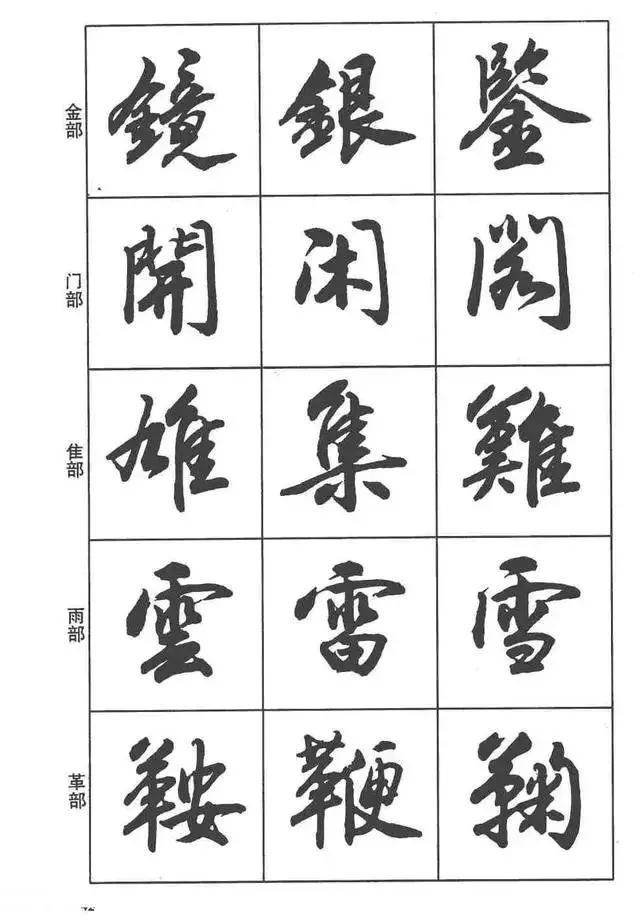 金部 鏡 銀 鑒
门部 開 閑 閣
隹部 雄 集 難
雨部 雲 雷 雪
革部 鞍 鞭 鞠